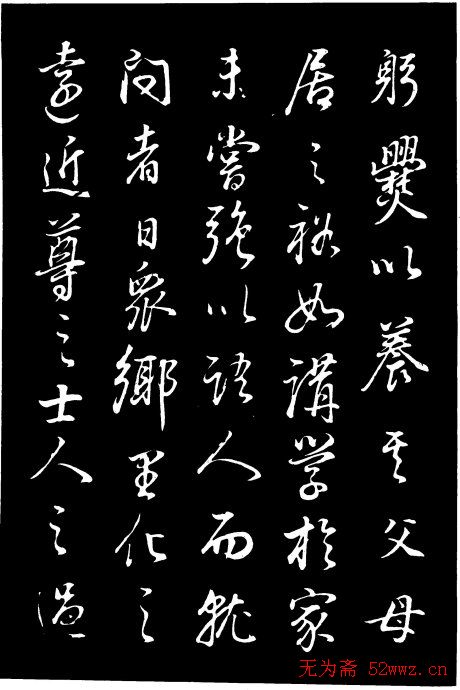 躬爨以養其父母
居之裕如講學於家
未嘗強以語人而就
問者日眾鄉里化之
遠近尊之士人之過
无为斋 52wwz.cn